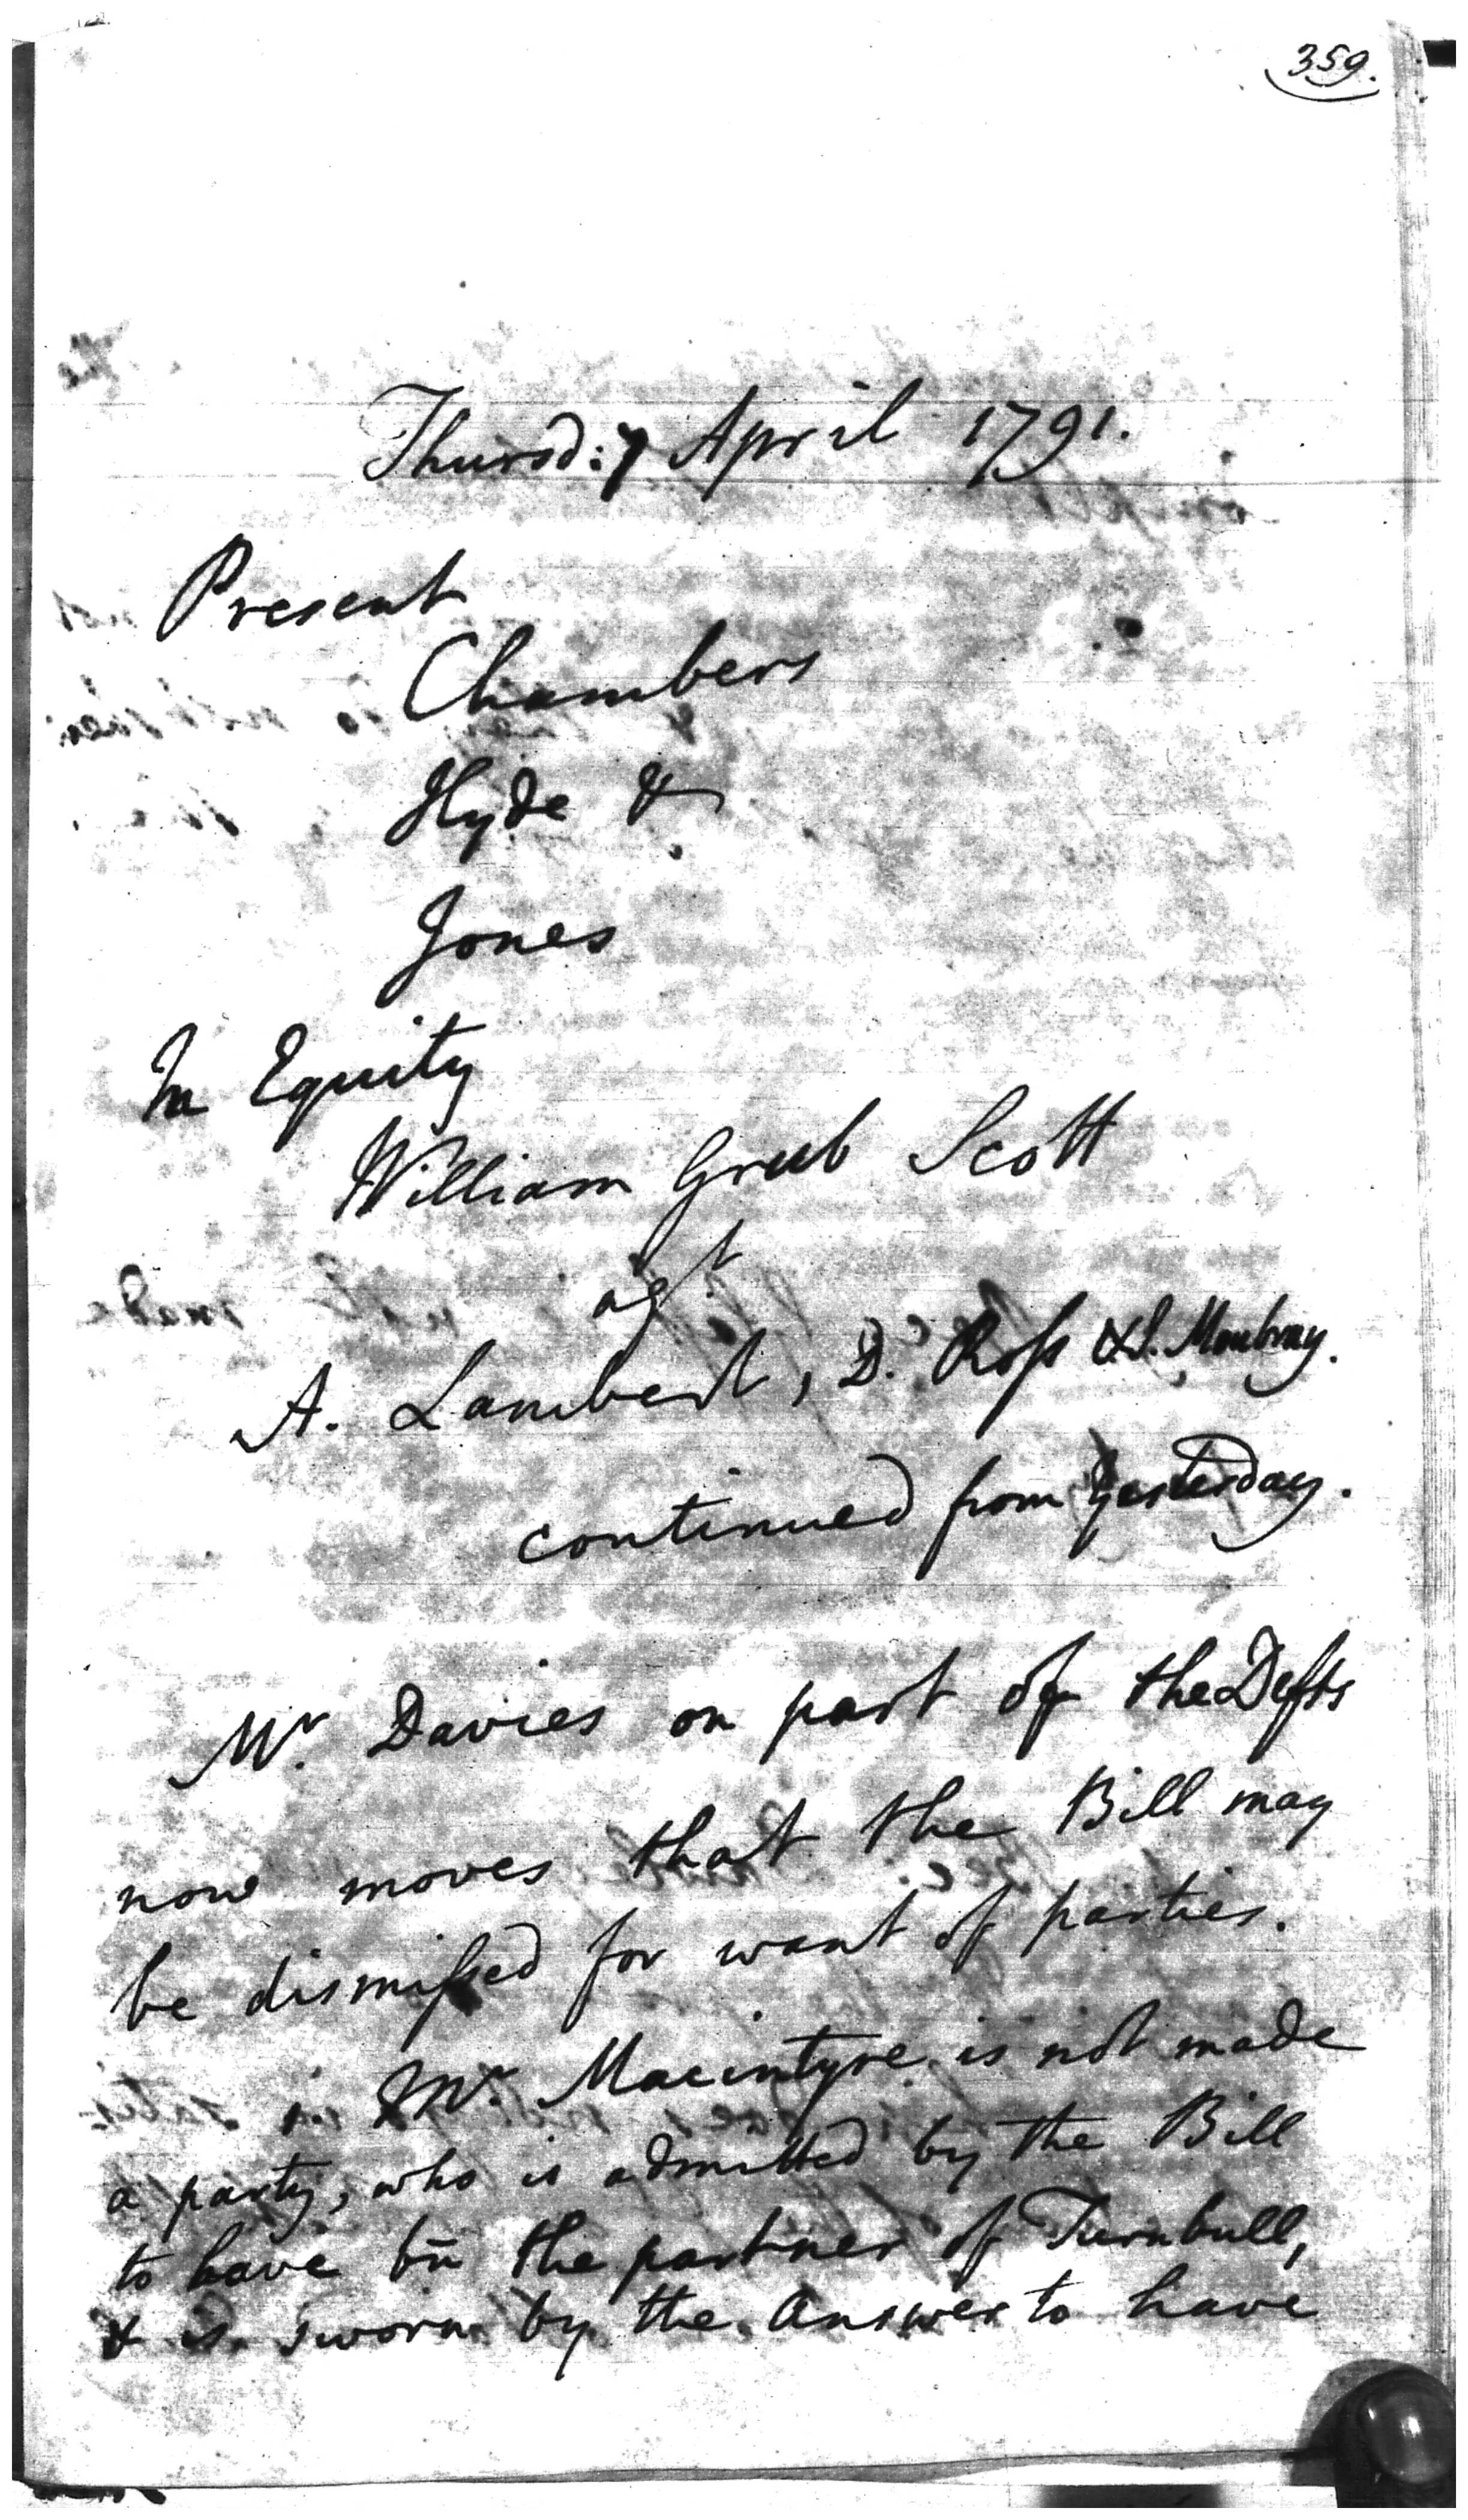 359.
Thursd: 7 April 1791.
Present
Chambers
Hyde &
Jones
In Equity
William Grub Scott
agt
A. Lambert, D. Ross & S. Moubray.
continued from Yesterday.
Mr. Davies on part of the Defts
now moves that the Bill may
be dismissed for want of parties.
Mr. Macintyre is not made
a party, who is admitted by the Bill
to have bn the partner of Turnbull,
& is sworn by the Answer to have